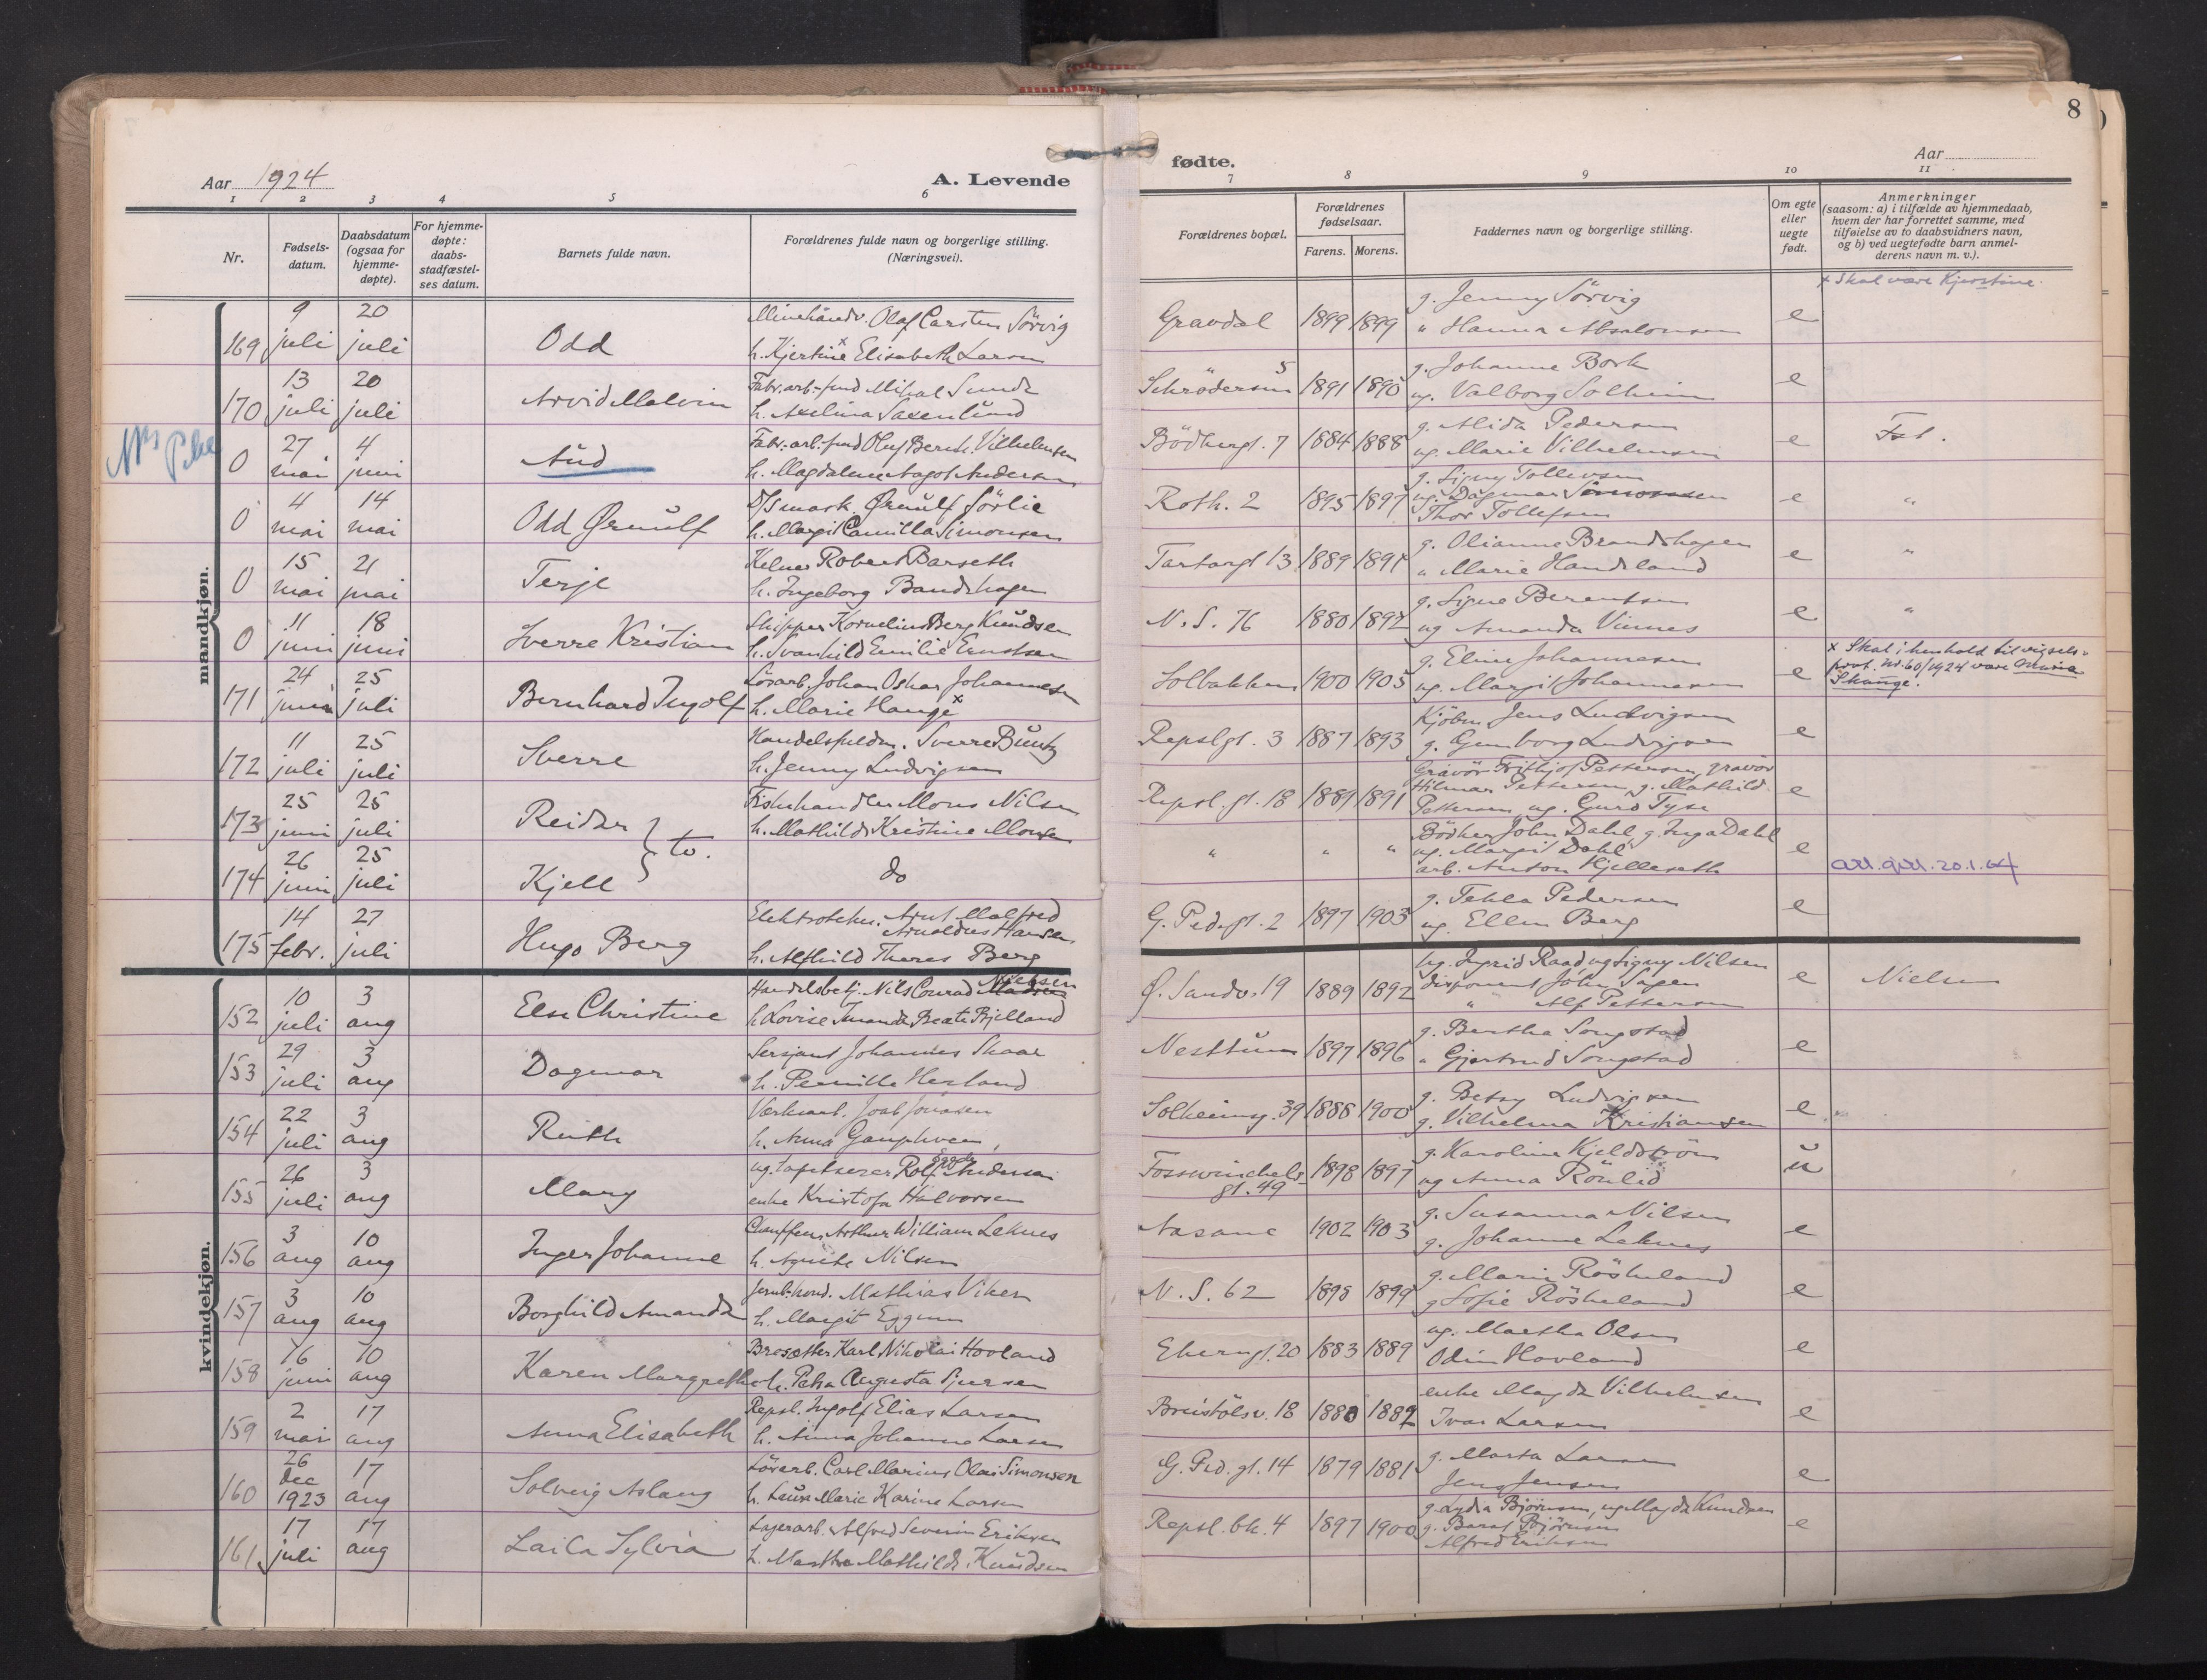 Aar 1924
A. Levende
1 2 3 4 5 6
Nr.
Fødsels-
datum.
Daabsdatum
(ogsaa for
hjemme-
døpte).
For hjemme-
døpte:
daabs-
stadfæstel-
ses datum.
Barnets fulde navn.
Forældrenes fulde navn og borgerlige stilling.
(Næringsvei).
mandkjøn.
169 9 juli 20 juli Odd
Olaf Carsten Sörvig
h. Kjertine x Elisabeth Larsen
170 13 juli 20 juli Arvid Malvin
Fabr.arb. Mikal Sunde
h. Axelina Saxenlund
NB Pike
0 27 mai 4 juni Aud
Fabr. arb. Oluf Bernh. Vilhelmsen
h. Magdalene Aagot Andersen
0 4 mai 14 mai Odd Ørnulf
Ørnulf Sörlie
h. Margit Camilla Simonsen
0 15 mai 21 mai Terje
Kelner Robert Barseth
h. Ingeborg Brandshagen
0 11 juni 18 juni Sverre Kristian
Skipper Kornelius Berg Knudsen
h. Svanhild Emilie Erntsen
171 24 juni 25 juli Bernhard Ingolf
Lösarb. Johan Oskar Johannesen
h. Marie Hauge x
172 11 juli 25 juli Sverre
Sverre Büntz
h. Jenny Ludvigsen
173 25 juni 25 juli Reidar
Fiskehandler Mons Nilsen
h. Mathilde Kristine Monsen
174 26 juni 25 juli Kjell
to.
do
175 14 febr. 27 juli Hugo Berg
Elektrotekn. Arnt Malfred
Arnoldus Hansen
h. Alfhild Theres Berg
kvindekjøn.
152 10 juli 3 aug Else Christine
Nielsen
Handelsbetj. Nils Conrad Madsen
h. Lovise Amanda Beate Bjelland
153 29 juli 3 aug Dagmar
Sersjant Johannes Skaar
h. Pernille Herland
154 22 juli 3 aug Ruth
Joas Jonasen
h. Anna
155 26 juli 3 aug Mary
ug. tapetserer Rolf Andersen
enke Kristofa Halvorsen
156 3 aug 10 aug Inger Johanne
Chauffeur Arthur William Leknes
h. Agnethe Nilsen
157 3 aug 10 aug Borghild Amanda
Mathias Viken
h. Margit Eggum
158 16 juni 10 aug Karen Margrethe
Karl Nikolai Hovland
h. Petra Augusta Sjursen
159 2 mai 17 aug Anna Elisabeth
Repsl. Ingolf Elias Larsen
h. Anna Johanna Larsen
160 26 dec 1923 17 aug Solveig Aslaug
Lösarb. Carl Marius Olai Simonsen
h. Laura Marie Karine Larsen
161 17 juli 17 aug Laila Sylvia
Lagerarb. Alfred Severin Eriksen
h. Martha Mathilde Knudsen
8
fødte.
Aar
7 8 9 10 11
Forældrenes bopæl.
Forældrenes
fødselsaar.
Farens. Morens.
Faddernes navn og borgerlige stilling.
Om egte
eller
uegte
født.
Anmerkninger
(saasom: a) i tilfælde av hjemmedaab,
hvem der har forrettet samme, med
tilføielse av to daabsvidners navn,
og b) ved uegtefødte barn anmel-
derens navn m. v.).
x Skal være Kjerstine.
Gravdal 1899 1899
g. Jenny Sörvig
" Hanna Absalonsen
e
1891 1890
g. Johanne Bork
ug. Valborg Solheim
e
Bödkergt. 7 1884 1888
g. Alida Pedersen
ug. Marie Vilhelmsen
e
Roth. 2 1895 1897
g. Signy Tollevsen
ug. Dagmar Simonsen
Thor Tollefsen
e "
Tartargt 13 1889 1891
g. Olianna Brandshagen
" Marie Handeland
e "
N. S. 76 1880 1892
g. Signe Berentsen
ug Amanda Vinnes
e "
Solbakken 1900 1905
g. Eline Johannesen
ug. Margit Johannesen
e
x Skal i henhold til vigsels-
prot. nr. 60/1924 være Maria
Skauge.
Repslgt. 3 1887 1893
Kjöbm Jens Ludvigsen
g. Gunborg Ludvigsen
e
Repsl. gt. 18 1889 1891
Gravör Frithjof Pettersen, gravör
Hilmar Pettersen, g. Mathild
Pettersen, ug. Gurö Tyse
e
" " "
Bödker John Dahl, g. Inga Dahl
ug. Margit Dahl
arb. Anton Hjelleseth
e
G. Ped.gt. 2 1897 1903
g. Tekla Pedersen
ug. Ellen Berg
e
Ø. Sandv. 19 1889 1892
ug. Ingrid Raad ug Signy Nilsen
disponent John Sagen
" Alf Pettersen
e Nielsen
Nesttun 1897 1896
g. Bertha Songstad
" Gjertrud Songstad
e
Solheimsg. 39 1888 1900
g. Betsy Ludvigsen
g. Vilhelmina Kristiansen
e
Fosswinckels
gt. 49 1898 1897
g. Karoline Kjeldström
ug Anna Rönlid
u
Aasane 1902 1903
g. Susanna Nilsen
g. Johanne Leknes
e
N. S. 62 1898 1899
g. Marie Rösheland
g Sofie Rösheland
e
Ekerngt. 20 1883 1889
ug. Martha Olsen
Odin Hovland
e
Breistölsv. 18 1880 1882
enke Magda Vilhelmsen
Ivar Larsen
e
G. Ped. gt. 14 1879 1881
g. Marta Larsen
Jens Jensen
e
Repsl. bk. 4 1897 1900
g. Lydia Björnsen, ug. Magda Knudsen
g. Berat Björnsen
Alfred Eriksen
e